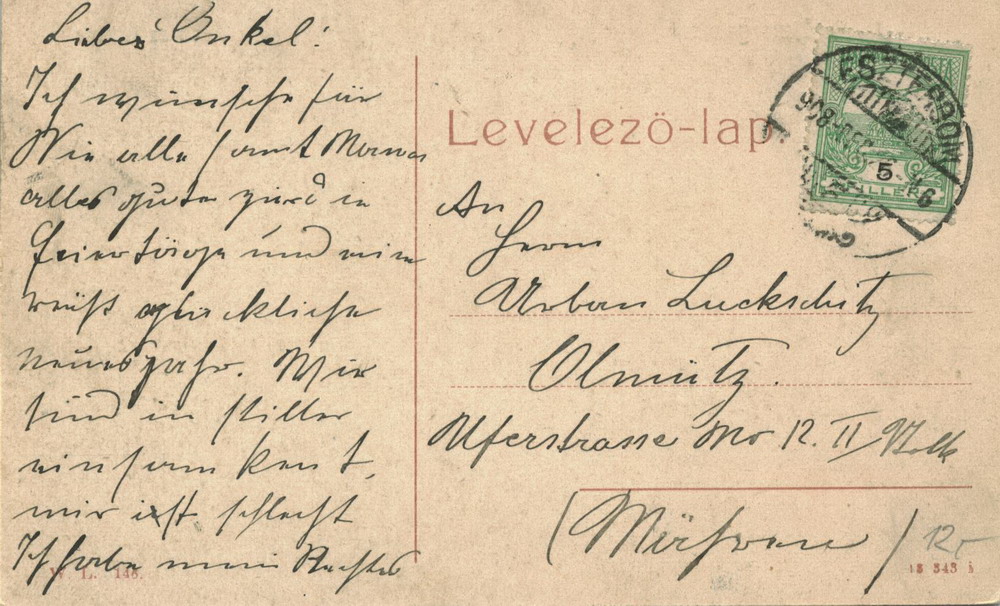 Liebes Onkel!
Ich wünsche für
Wie alle samt Mama
alles gute zurd in
feiertäge und ein
glückliche
neues jahr. Wir
sind in stiller
einsamkeit,
mir ist schlecht
Ich habe mein Rechtes
W. L. 146.
Levelező-lap
ESZTERGOM
908
5
FILLÉR
An
Herrn
Urban Luckschitz
Olmütz.
Uferstrasse No 12. II
(Mähren)
12
18 343